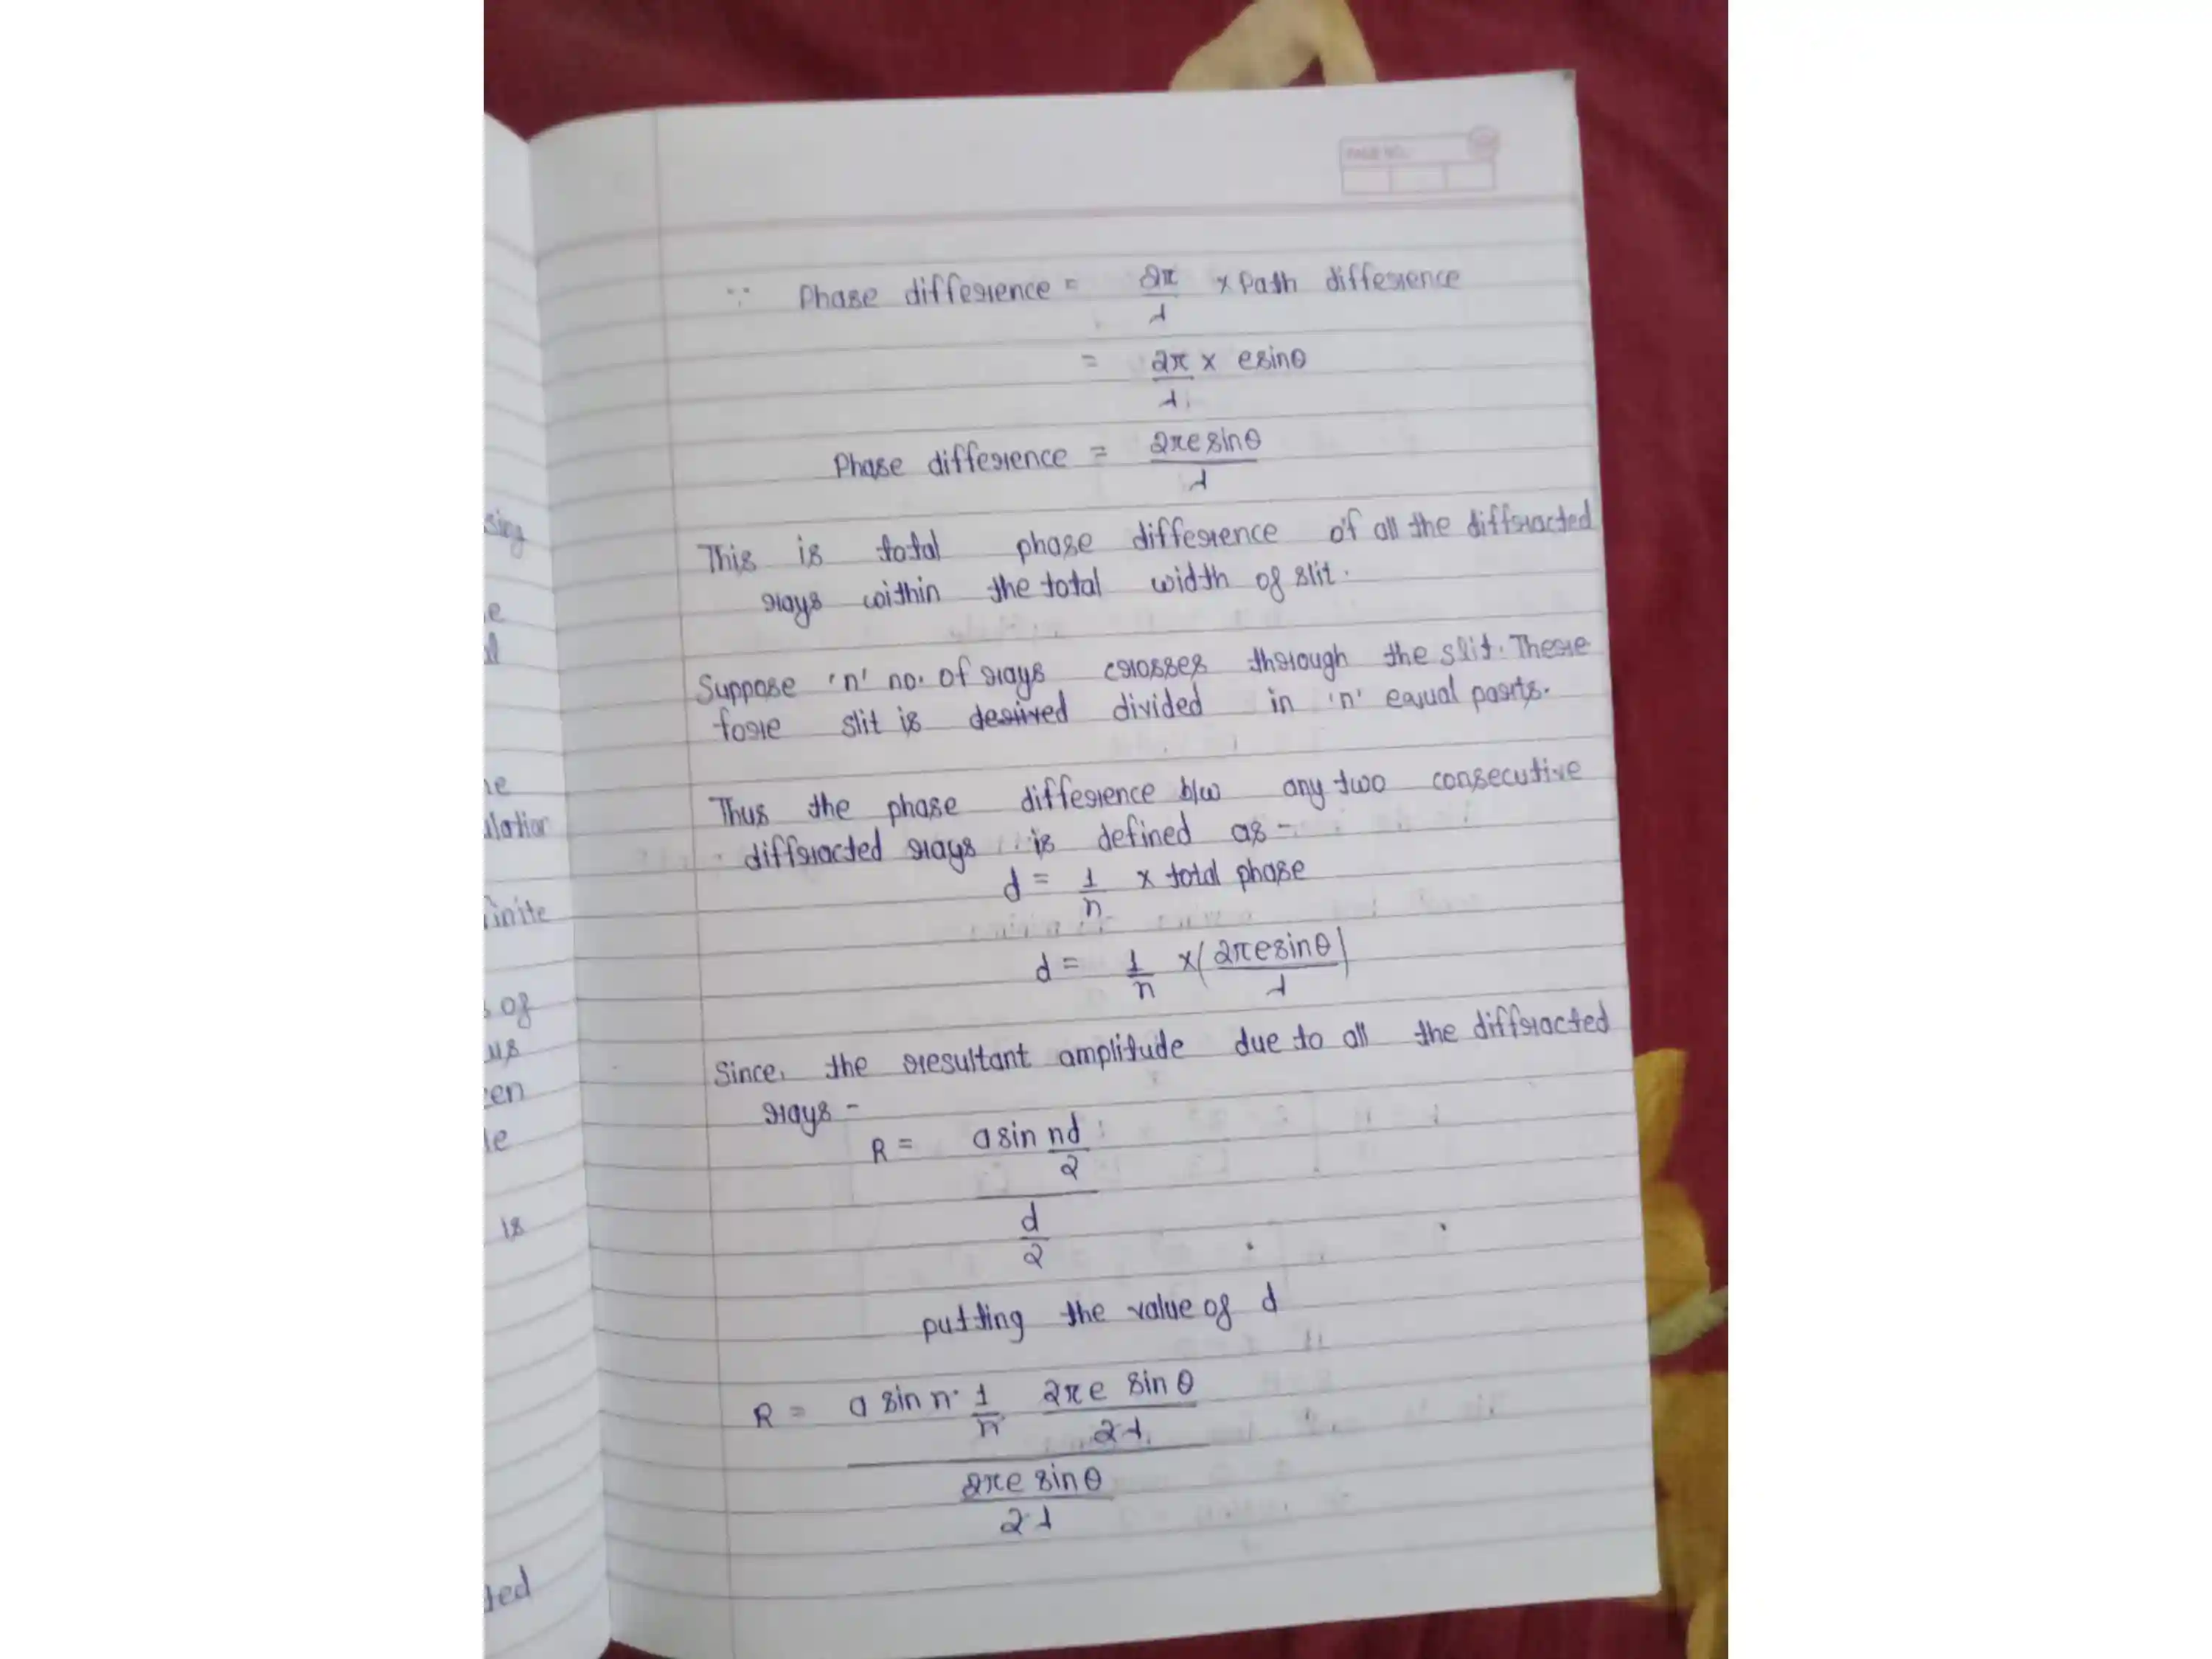 sing
e
l
e
lation
finite
s of
us
en
le
is
ted
PAGE NO.
∵ Phase difference = 2π/λ × Path difference
= 2π/λ × esinθ
Phase difference = 2πesinθ/λ
This is total phase difference of all the diffracted
rays within the total width of slit.
Suppose 'n' no. of rays crosses through the slit. There
fore slit is divided in 'n' equal parts.
Thus the phase difference b/w any two consecutive
diffracted rays is defined as -
d = 1/n × total phase
d = 1/n × (2πesinθ/λ)
Since, the resultant amplitude due to all the diffracted
rays -
R = a sin nd/2
d/2
putting the value of d
R = a sin n. 1/n 2πe sin θ/2λ
2πe sin θ/2λ